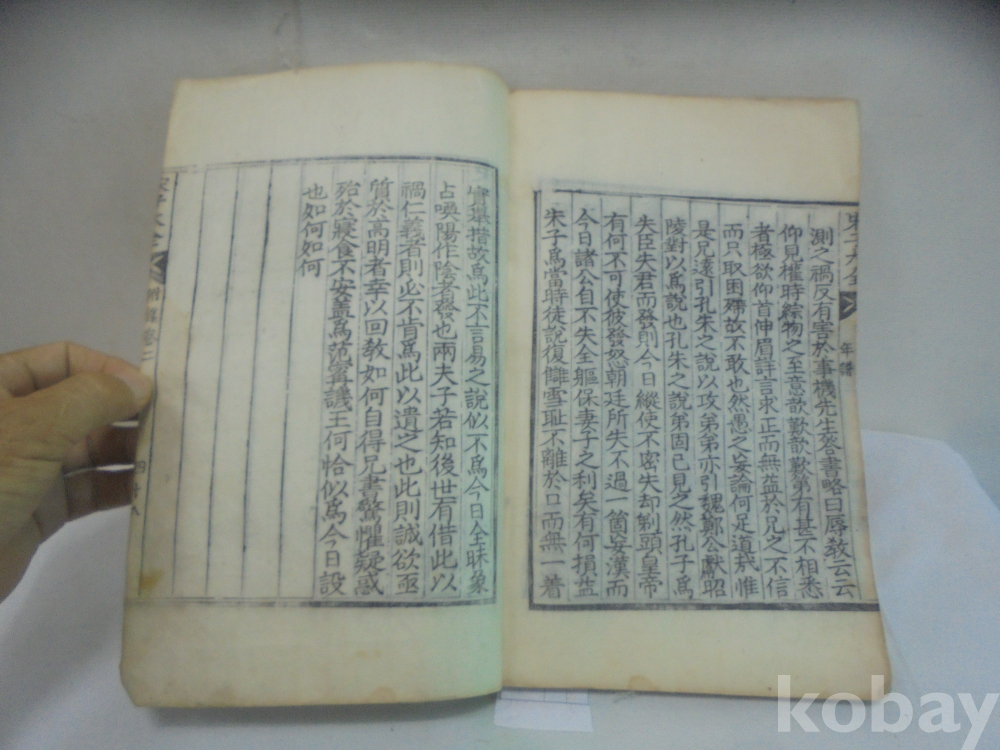 年譜
測之禍反有害於事機先生答書略曰辱敎云云
仰見權時綜物之至意歆歎歆歎第有甚不相悉
者極欲仰首伸眉詳言求正而無益於兄之不信
而只取困殢故不敢也然愚之妄論何足道哉惟
是兄遠引孔朱之說以攻弟弟亦引魏鄭公獻昭
陵對以爲說也孔朱之說弟固已見之然孔子爲
失臣失君而發則今日縱使不密失却剃頭皇帝
有何不可使彼發怒朝廷所失不過一箇妄漢而
今日諸公自不失全軀保妻子之利矣有何損益
朱子爲當時徒說復讎雪耻不離於口而無一着
實擧措故爲此不言易之說似不爲今日全昧象
占喚陽作陰者發也兩夫子若知後世有借此以
禍仁義者則必不肯爲此以遺之也此則誠欲亟
質於高明者幸以回敎如何自得兄書驚惧疑惑
殆於寢食不安盖爲范甯譏王何恰似爲今日設
也如何如何
宋子大全
附錄卷二
kobay